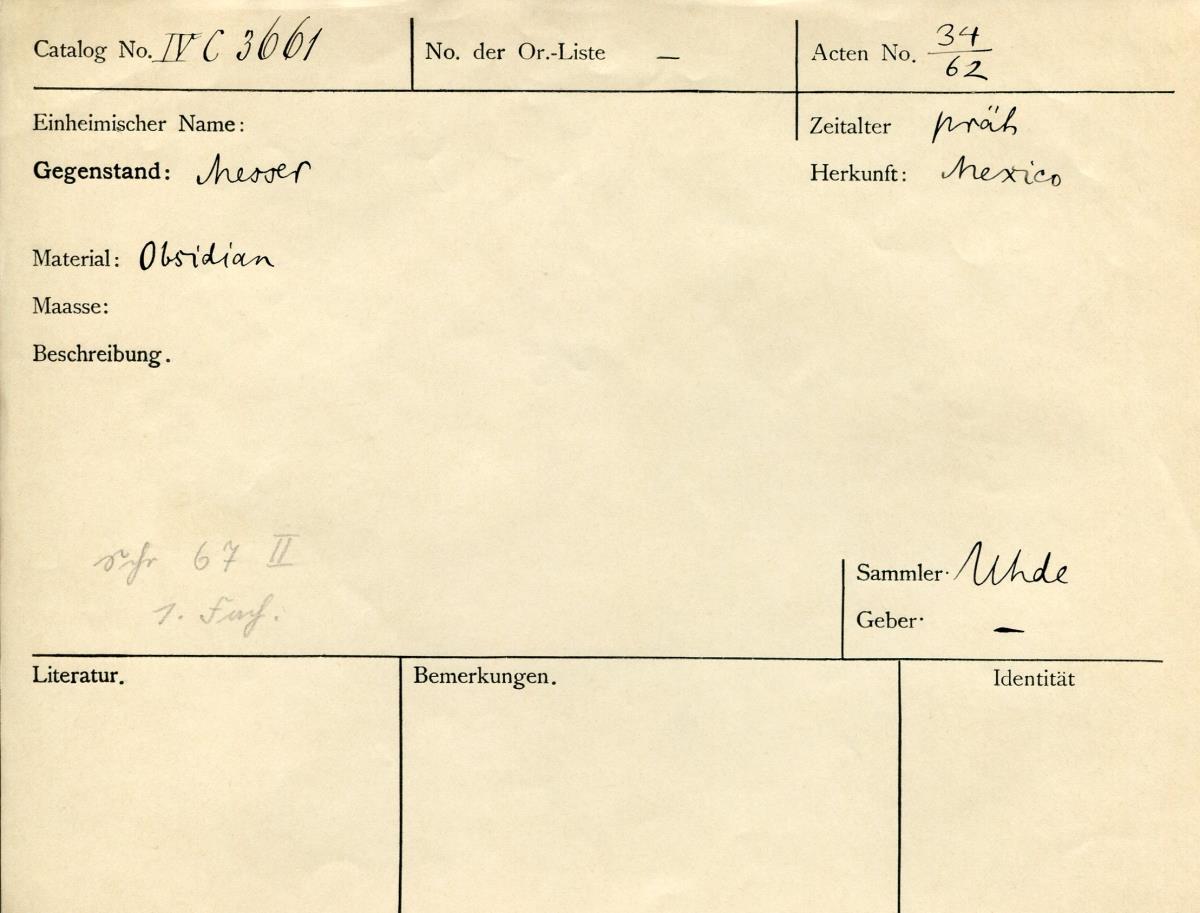 Catalog No. IV C 3661 No. der Or.-Liste — Acten No. 34/62
Einheimischer Name: Zeitalter präh
Gegenstand: Messer Herkunft: Mexico
Material: Obsidian
Maasse:
Beschreibung.
Schr 67 II
Sammler· Uhde
1. Fach.
Geber· —
Literatur. Bemerkungen. Identität